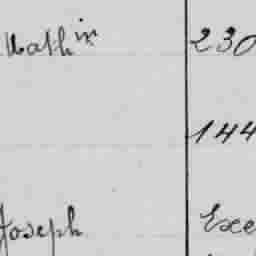 Math in 230
144
Joseph Exe